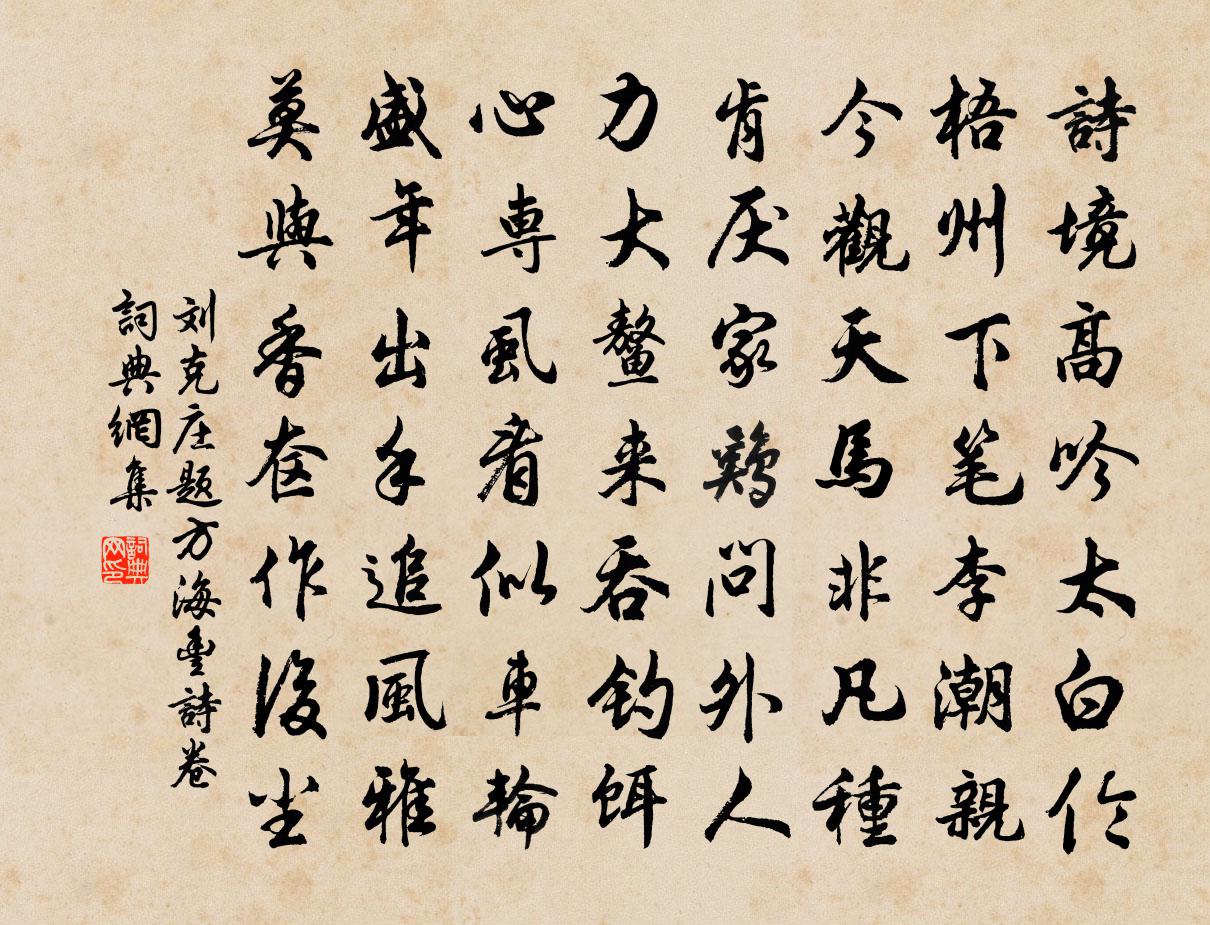 詩境高吟太白伦
梧州下笔李潮親
今觀天馬非凡種
肯厌家鷄問外人
力大鳌来吞钓饵
心専虱看似車輪
盛年出手追風雅
莫與香奁作後尘
刘克庄题方海豐詩卷
詞典網集
詞典网印